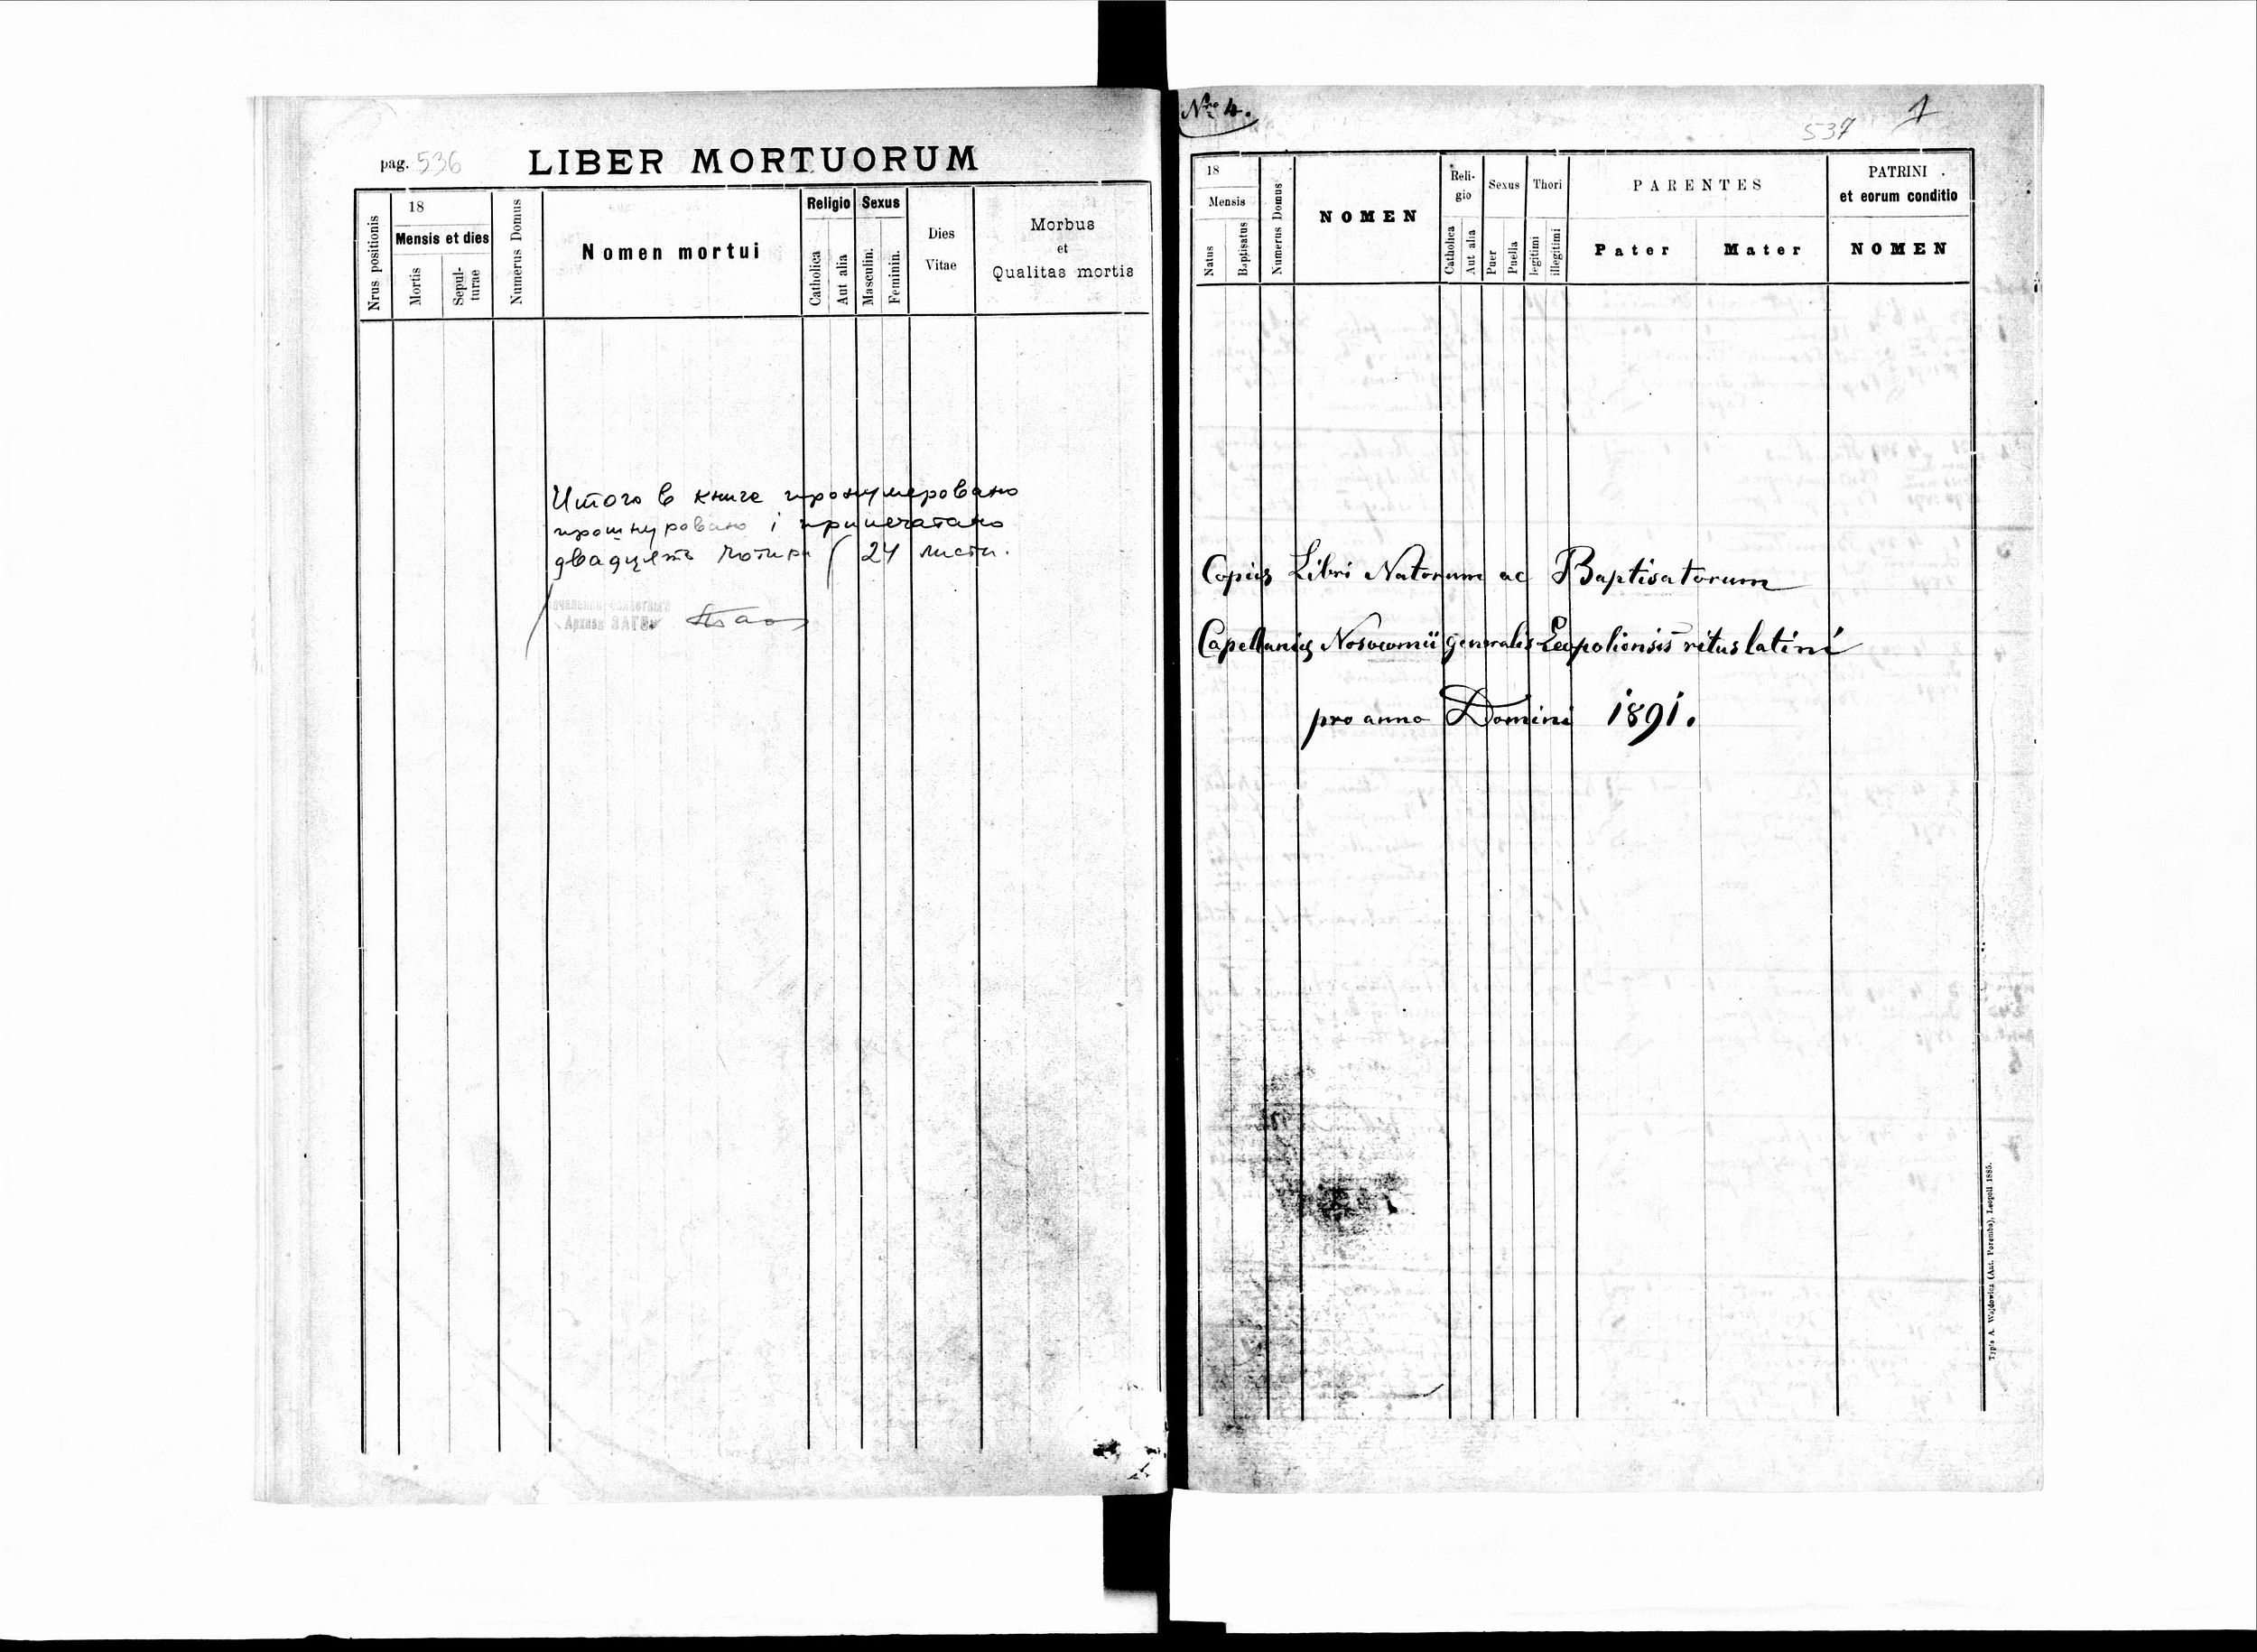 pag. 536 LIBER MORTUORUM
Nrus positionis
18
Mensis et dies
Mortis
Sepul-
turae
Numerus Domus
Nomen mortui
Religio
Catholica
Aut alia
Sexus
Masculin.
Feminin.
Dies
Vitae
Morbus
et
Qualitas mortis
Итого в книге пронумеровано
прошнуровано і припечатано
двадцять чотири (24 листи.
Архив ЗАГС
Nro 4.
537 1
18
Mensis
Natus
Baptisatus
Numerus Domus
NOMEN
Reli-
gio
Catholica
Aut alia
Sexus
Puer
Puella
Thori
legitimi
illegitimi
PARENTES
Pater
Mater
PATRINI
et eorum conditio
NOMEN
Copia Libri Natorum ac Baptisatorum
Capellaniæ Nosocomii generalis Leopoliensis ritus latini
pro anno Domini 1891.
Typis A. Wajdowicz (Ant. Poremba), Leopoli 1885.